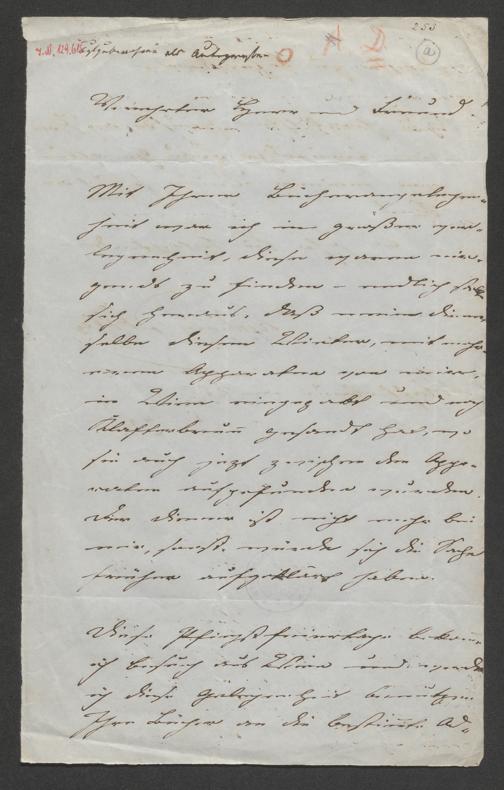 253
a
I.N. 129.615
O A D
Verehrter Herr und Freund.
Mit Ihrer Bücherangelegen-
heit war ich in großer Ver-
legenheit, diese waren nir-
gends zu finden – endlich stellt
sich heraus, daß mein Diener
selbe diesen Winter, mit meh-
reren Apparaten von mir,
in Wien eingepakt und nach
Klafterbrunn gesandt hat, wo
sie auch jetzt zwischen den Appa-
raten aufgefunden wurden.
Der Diener ist nicht mehr bei
mir, sonst würde sich die Sache
früher aufgeklärt haben.
Diese Pfingstfeiertage bekam
ich Besuch aus Wien und werde
ich diese Gelegenheit benutzen
Ihre Bücher an die bestimmte Ad-